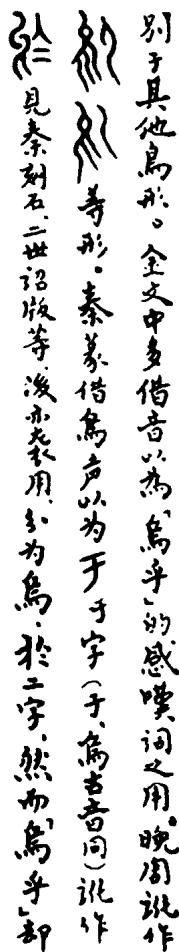 别于其他鸟形。金文中多借音以為「烏乎」的感嘆詞之用。晚周訛作
等形。秦篆借烏声以为于于字（于、烏古音同）訛作
見秦刻石、二世诏版等、後亦表用、分为烏、於二字、然而「烏乎」却